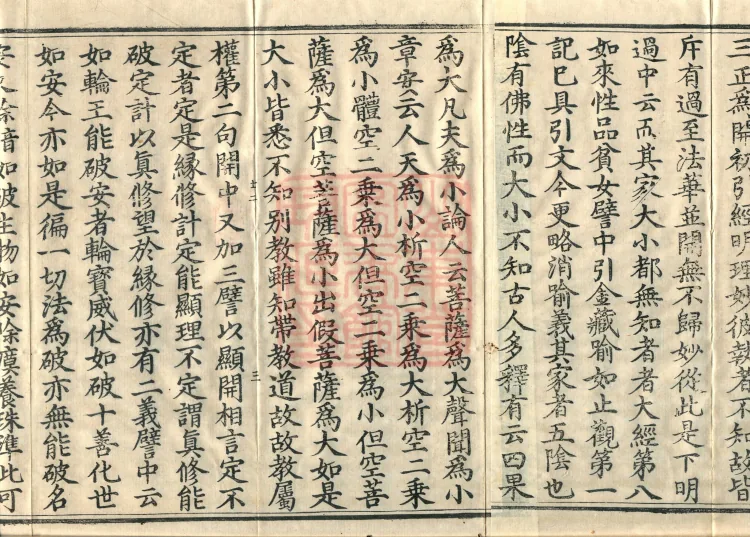 三正為開初引經明理如彼執者不知故皆
斥有過至法華並開無不歸妙從此是下明
過中云而其家大小都無知者者大經第八
如來性品貧女譬中引金藏喻如止觀第一
記已具引文今更略消喻義其家者五陰也
陰有佛性而大小不知古人多釋有云四果
為大凡夫為小論人云菩薩為大聲聞為小
章安云人天為小析空二乘為大析空二乘
為小體空二乘為大但空二乘為小但空菩
薩為大但空菩薩為小出假菩薩為大如是
大小皆悉不知別教雖知帶教道故故教屬
權第二句開中又加三譬以顯開相言定不
定者定是緣修計定能顯理不定謂真修能
破定計以真修望於緣修亦有二義譬中云
如輪王能破安者輪寶威伏如破十善化世
如安今亦如是徧一切法為破亦無能破名
如破生物如安除膜養珠準此可
十二
三